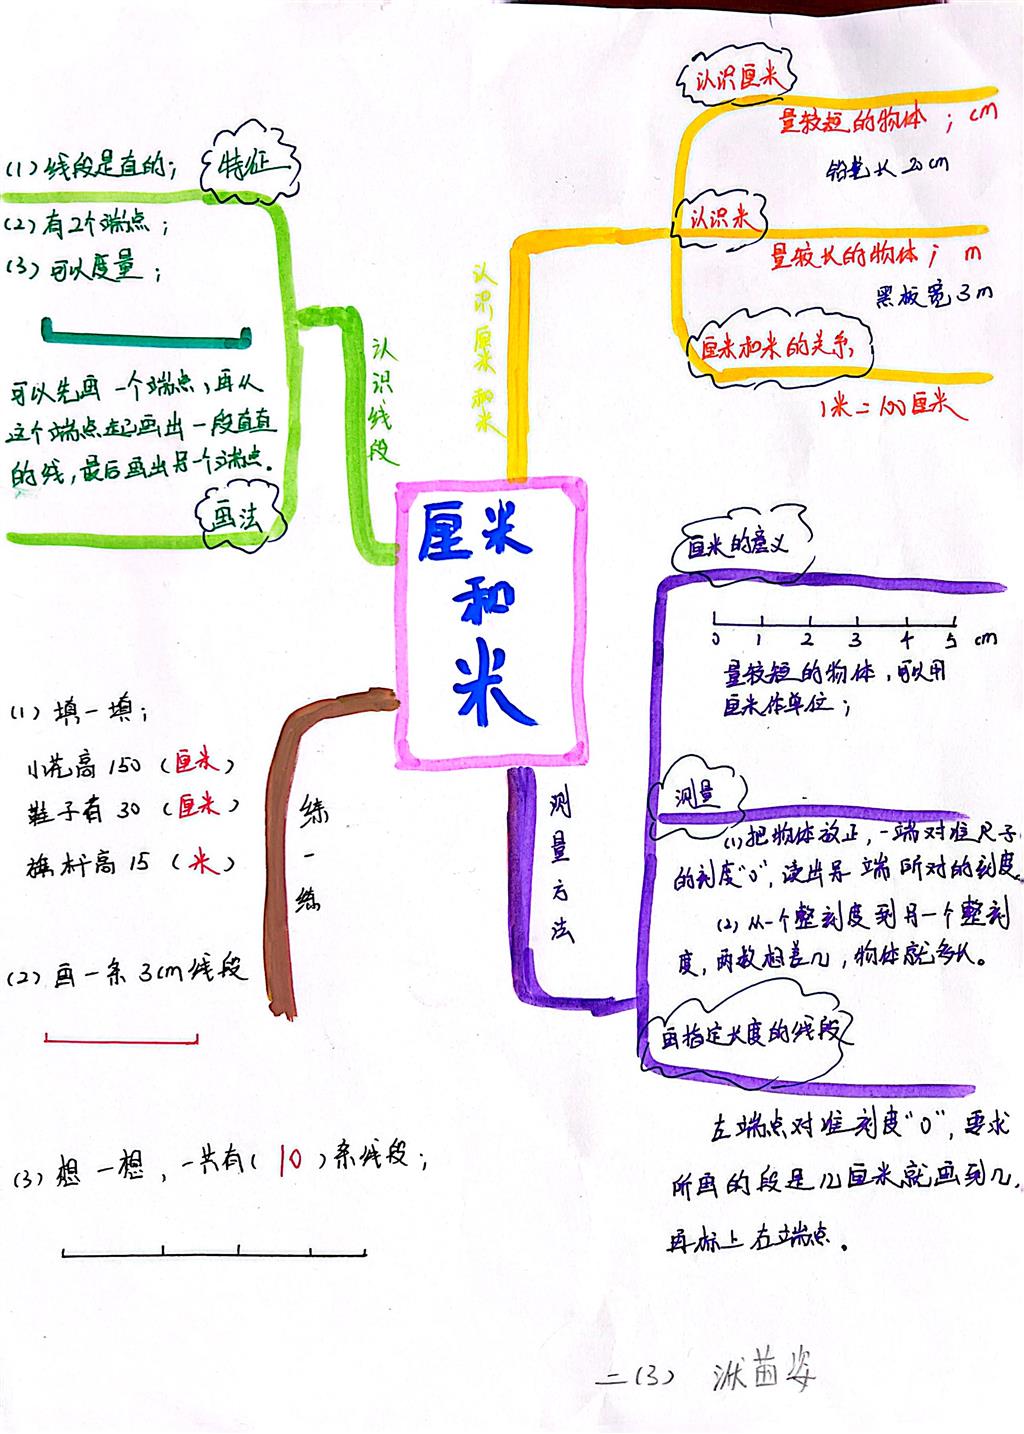 厘米
和
米
认识厘米和米
认识厘米
量较短的物体；cm
铅笔长20cm
认识米
量较长的物体；m
黑板宽3m
厘米和米的关系
1米=100厘米
认识线段
特征
(1)线段是直的；
(2)有2个端点；
(3)可以度量；
可以先画一个端点，再从
这个端点起画出一段直直
的线，最后画出另一个端点。
画法
测量方法
厘米的意义
0 1 2 3 4 5 cm
量较短的物体，可以用
厘米作单位；
测量
(1)把物体放正，一端对准尺子
的刻度"0"，读出另一端所对的刻度。
(2)从一个整刻度到另一个整刻
度，两数相差几，物体就多长。
画指定长度的线段
左端点对准刻度"0"，要求
所画的段是几厘米就画到几，
再标上右端点。
练一练
(1)填一填；
小花高150（厘米）
鞋子有30（厘米）
旗杆高15（米）
(2)画一条3cm线段
(3)想一想，一共有(10)条线段；
二(3)